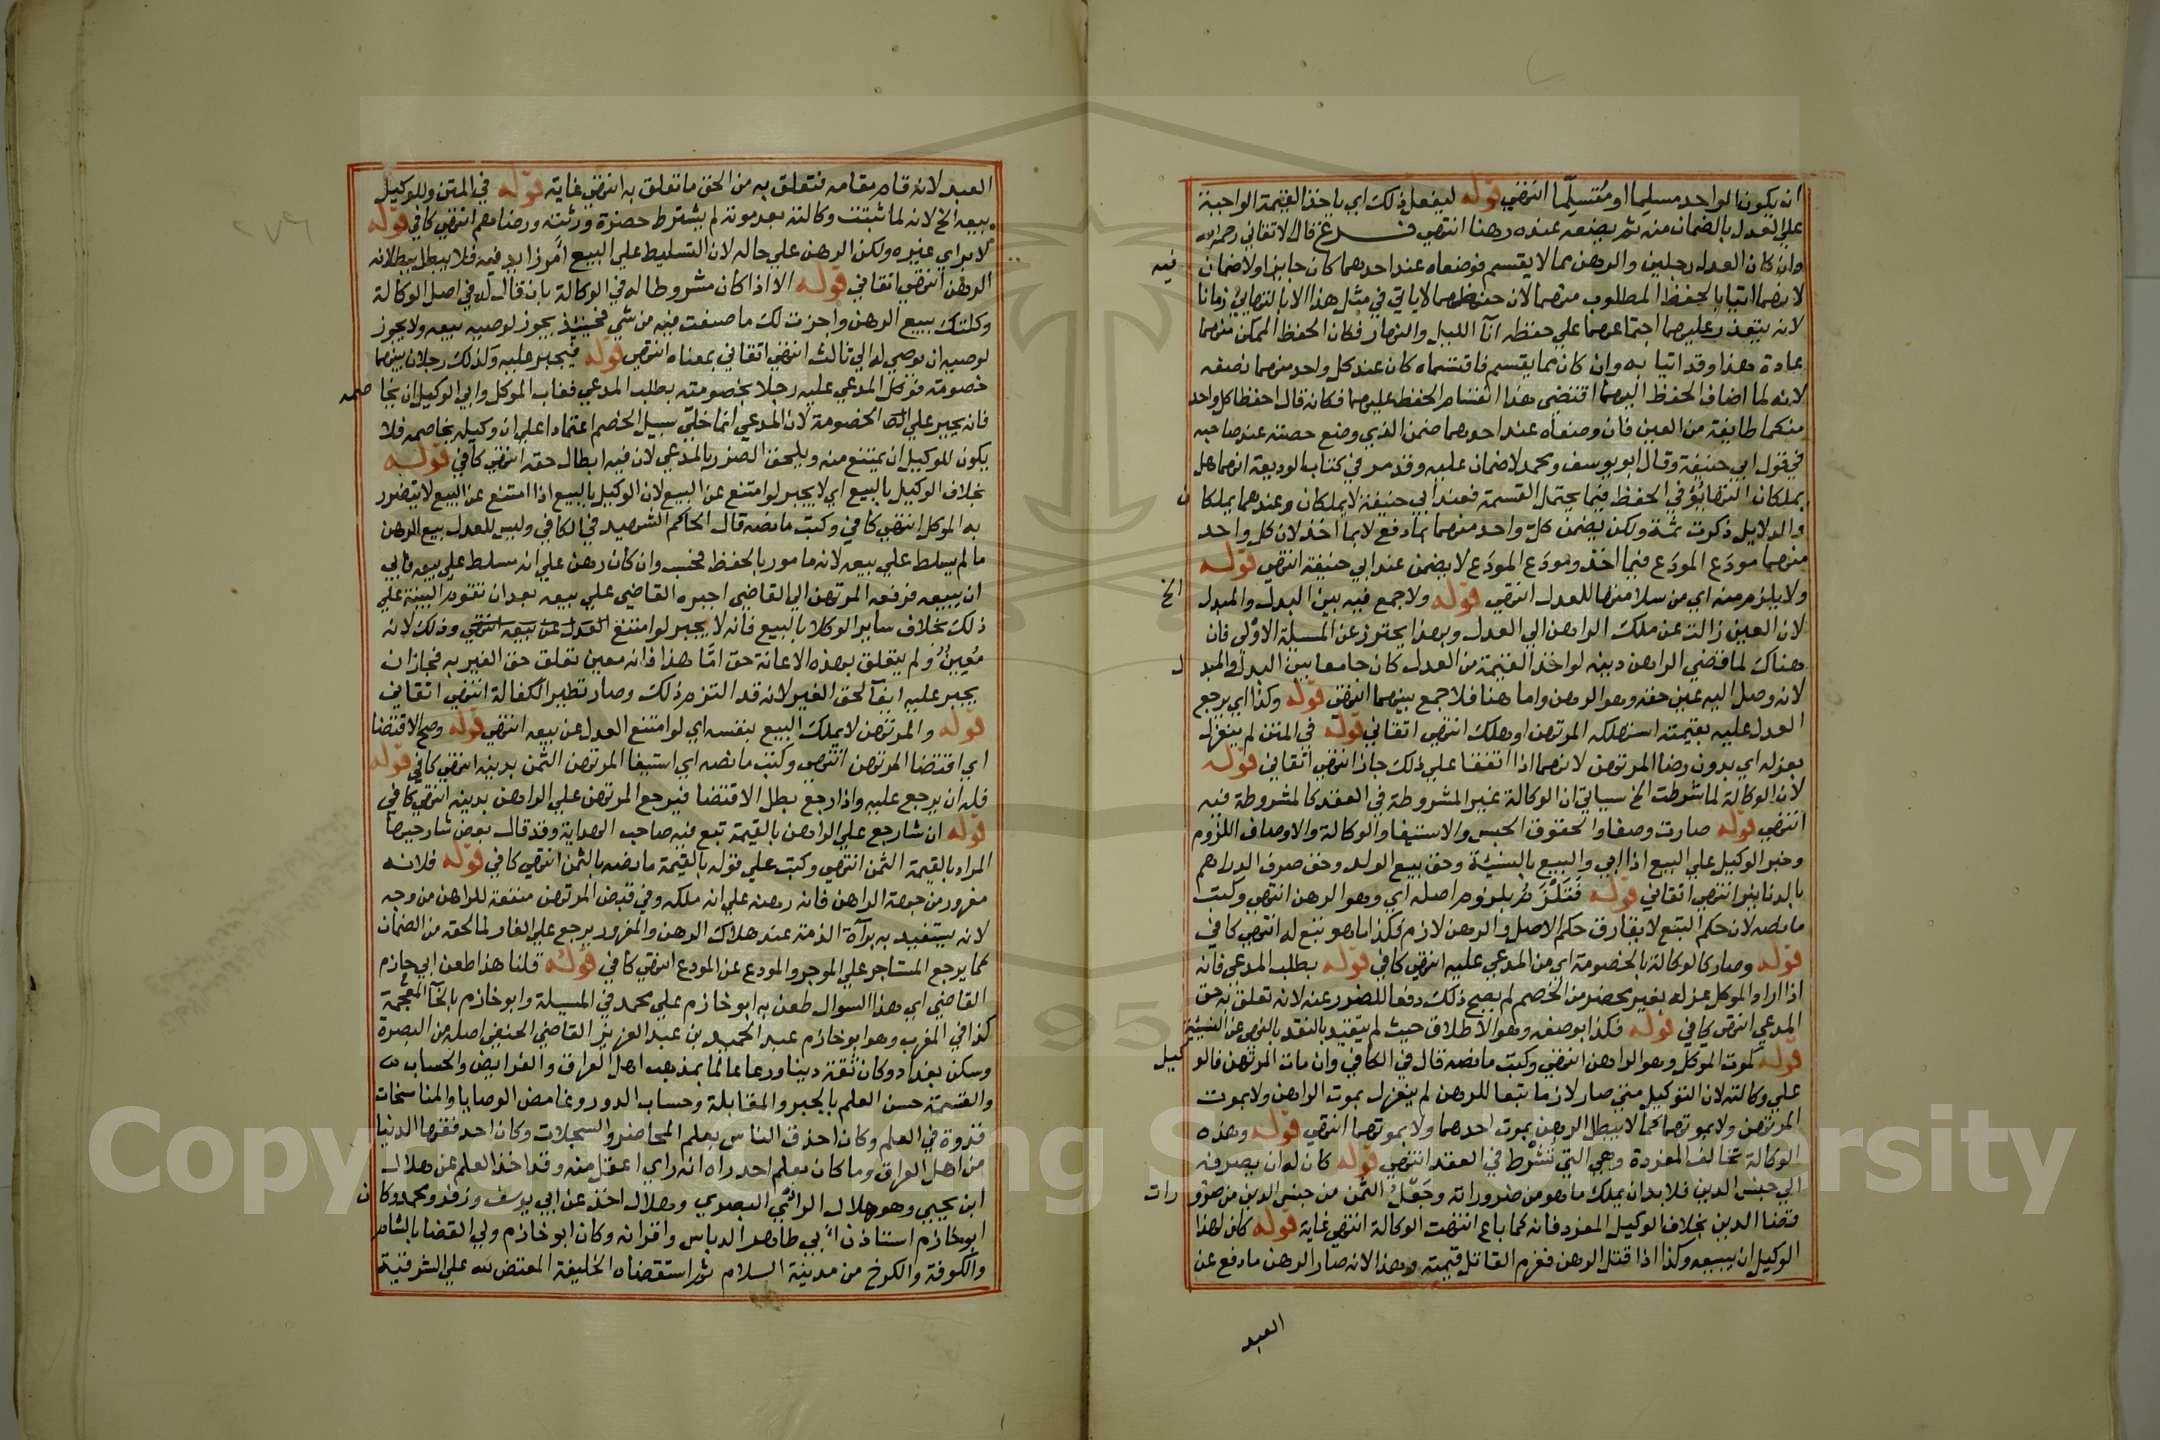 ان يكون الواحد مسلما او متسلما انتهى قوله ليفعل ذلك اي ياخذ القيمة الواجبة
على العدل بالضمان منه ثم يضعه عنده رهنا انتهى فرع قال الاتقاني رحمه الله
وان كان العدل رجلين والرهن مما لا يقسم فوضعاه عند احدهما كان جايزا ولا ضمان فيه
لانهما اتيا بالحفظ المطلوب منهما لان حفظهما لا ياتي في مثل هذا الا بالتهايؤ زمانا
لانه يتعذر عليهما اجتماعهما علي حفظه آنآ الليل والنهار فكان الحفظ الممكن منهما
عادة هذا وقد اتيا به وان كان مما يقسم فاقتسماه كان عند كل واحد منهما نصفه
لانه لما اضاف الحفظ اليهما اقتضى هذا انقسام الحفظ عليهما فكانه قال احفظا كل واحد
منكما طايفة من العين فان وضعاه عند احدهما ضمن الذي وضع حصته عند صاحبه
في قول ابي حنيفة وقال ابو يوسف ومحمد لا ضمان عليه وقد مر في كتاب الوديعة انهما هل
يملكان التهايؤ في الحفظ فيما يحتمل القسمة فعند ابي حنيفة لا يملكان وعندهما يملكان
والدلايل ذكرت ثمة ولكن يضمن كل واحد منهما بما دفع لا بما اخذ لان كل واحد
منهما مودع المودع فيما اخذ ومودع المودع لا يضمن عند ابي حنيفة انتهى قوله
ولا يلزم منه اي من سلامتها للعدل انتهى قوله ولا جمع فيه بين البدل والمبدل الخ
لان العين زالت عن ملك الراهن الي العدل وبهذا يحترز عن المسئلة الاولى فان
هناك لما قضى الراهن دينه لو اخذ القيمة من العدل كان جامعا بين البدل والمبدل
لانه وصل اليه عين حقه وهو الرهن واما هنا فلا جمع بينهما انتهى قوله وكذا اي يرجع
العدل عليه بقيمته استهلكه المرتهن او هلك انتهى اتقاني قوله في المتن لم ينعزل
بعزله اي بدون رضا المرتهن لانهما اذا اتفقا علي ذلك جاز انتهى اتقاني قوله
لان الوكالة لما شرطت الخ سياتي ان الوكالة غير المشروطة في العقد كالمشروطة فيه
انتهى قوله صارت وصفا والحقوق الحبس والاستيفا والوكالة والاوصاف اللزوم
وجبر الوكيل علي البيع اذا ابى والبيع بالنسئة وحق بيع الولد وحق صرف الدراهم
بالدنانير انتهى اتقاني قوله فتلزم بلزوم اصله اي وهو الرهن انتهى وكتب
ما نصه لان حكم التبع لا يفارق حكم الاصل والرهن لازم فكذا ما هو تبع له انتهى كافي
قوله وصار كالوكالة بالخصومة اي من المدعي عليه انتهى كافي قوله بطلب المدعي فانه
اذا اراد الموكل عزله بغير محضر من الخصم لم يصح ذلك دفعا للضرر عنه لانه تعلق به حق
المدعي انتهى كافي قوله فكذا بوصفه وهو الاطلاق حيث لم يتقيد بالنقد بالنهي عن النسئة
قوله كموت الموكل وهو الراهن انتهى وكتب ما نصه قال في الكافي وان مات المرتهن فالوكيل
علي وكالته لان التوكيل متى صار لازما تبعا للرهن لم ينعزل بموت الراهن ولا بموت
المرتهن ولا بموتهما كما لا يبطل الرهن بموت احدهما ولا بموتهما انتهى قوله وهذه
الوكالة تخالف المفردة وهي التي تشرط في العقد انتهى قوله كان له ان يصرفه
الي جنس الدين فلا بد ان يملك ما هو من ضروراته وجعل الثمن من جنس الدين من ضرورات
قضا الدين بخلاف الوكيل المفرد فانه كما باع انتهت الوكالة انتهى غاية قوله كان لهذا
الوكيل ان يبيعه وكذا اذا قتل الرهن فغرم القاتل قيمته وهذا لانه صار الرهن ما دفع عن
العبد
العبد لانه قام مقامه فتعلق به من الحق ما تعلق به انتهى غاية قوله في المتن وللوكيل
بيعه الخ لانه لما ثبتت وكالته بعد موته لم يشترط حضرة ورثته ورضاهم انتهى كافي قوله
لا براي غيره ولكن الرهن علي حاله لان التسليط علي البيع امر زايد فيه فلا يبطل ببطلانه
الرهن انتهى اتقاني قوله الا اذا كان مشروطا له في الوكالة بان قال له في اصل الوكالة
وكلتك ببيع الرهن واجزت لك ما صنعت فيه من شي فحينئذ يجوز لوصيه بيعه ولا يجوز
لوصيه ان يوصي له الي ثالث انتهى اتقاني بمعناه انتهى قوله فيجبر عليه وكذلك رجلان بينهما
خصومة فوكل المدعي عليه رجلا بخصومته بطلب المدعي فغاب الموكل وابى الوكيل ان يخاصمه
فانه يجبر علي الخصومة لان المدعي انما خلى سبيل الخصم اعتمادا علي ان وكيله يخاصمه فلا
يكون للوكيل ان يمتنع منه ويلحق الضرر بالمدعي لان فيه ابطال حقه انتهى كافي قوله
بخلاف الوكيل بالبيع اي لا يجبر لو امتنع عن البيع لان الوكيل بالبيع اذا امتنع عن البيع لا يتضرر
به الموكل انتهى كافي وكتب ما نصه قال الحاكم الشهيد في الكافي وليس للعدل بيع الرهن
ما لم يسلط علي بيعه لانه مامور بالحفظ فحسب وان كان رهن علي انه مسلط علي بيعه فابى
ان يبيعه فرفعه المرتهن الي القاضي اجبره القاضي علي بيعه بعد ان تقوم البينة علي
ذلك بخلاف ساير الوكلا بالبيع فانه لا يجبر لو امتنع العدل عن بيعه انتهى وذلك لانه
معين ولم يتعلق بهذه الاعانة حق اما هذا فانه معين تعلق حق الغير به فجاز ان
يجبر عليه ايفآ لحق الغير لانه قد التزم ذلك وصار نظير الكفالة انتهى اتقاني
قوله والمرتهن لا يملك البيع بنفسه اي لو امتنع العدل عن بيعه انتهى قوله وصح الاقتضا
اي اقتضا المرتهن انتهى وكتب ما نصه اي استيفا المرتهن الثمن بدينه انتهى كافي قوله
فله ان يرجع عليه واذا رجع بطل الاقتضا فيرجع المرتهن علي الراهن بدينه انتهى كافي
قوله ان شا رجع علي الراهن بالقيمة تبع فيه صاحب الهداية وقد قال بعض شارحيها
المراد بالقيمة الثمن انتهى وكتب علي قوله بالقيمة ما نصه بالثمن انتهى كافي قوله فلانه
مغرور من جهة الراهن فانه رهنه علي انه ملكه وفي قبض المرتهن منفعة للراهن من وجه
لانه يستفيد به برآة الذمة عند هلاك الرهن والمغرور يرجع علي الغار لما لحقه من الضمان
كما يرجع المستاجر علي الموجر والمودع عن المودع انتهى كافي قوله قلنا هذا طعن ابي حازم
القاضي اي هذا السوال طعن به ابو خازم علي محمد في المسيلة وابو خازم بالخآ المعجمة
كذا في المغرب وهو ابو خازم عبد الحميد بن عبد العزيز القاضي الحنفي اصله من البصرة
وسكن بغداد وكان ثقة دينا ورعا عالما بمذهب اهل العراق والفرايض والحساب
والقسمة حسن العلم بالجبر والمقابلة وحساب الدور وغامض الوصايا والمناسخات
قدوة في العلم وكان احذق الناس بعلم المحاضر والسجلات وكان احد فقها الدنيا
من اهل العراق وما كان يعلم احد راه انه راي اعقل منه وقد اخذ العلم عن هلال
ابن يحيى وهو هلال الرائي البصري وهلال اخذ عن ابي يوسف وزفر ومحمد وكان
ابو خازم استاذ ابي طاهر الدباس واقرانه وكان ابو خازم ولي القضا بالشام
والكوفة والكرخ من مدينة السلام ثم استقضاه الخليفة المعتضد بالله علي الشرقية
Copyright © King Saud University